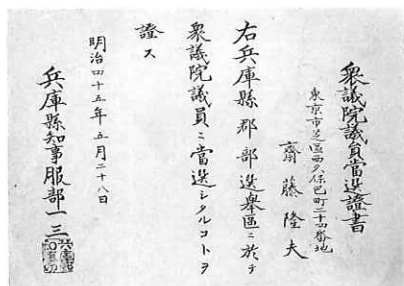 衆議院議員當選證書
東京市芝區西久保巴町二十四番地
齋藤隆夫
右兵庫縣郡部選擧區ニ於テ
衆議院議員ニ當選シタルコトヲ
證ス
明治四十五年五月二十八日
兵庫縣知事服部一三